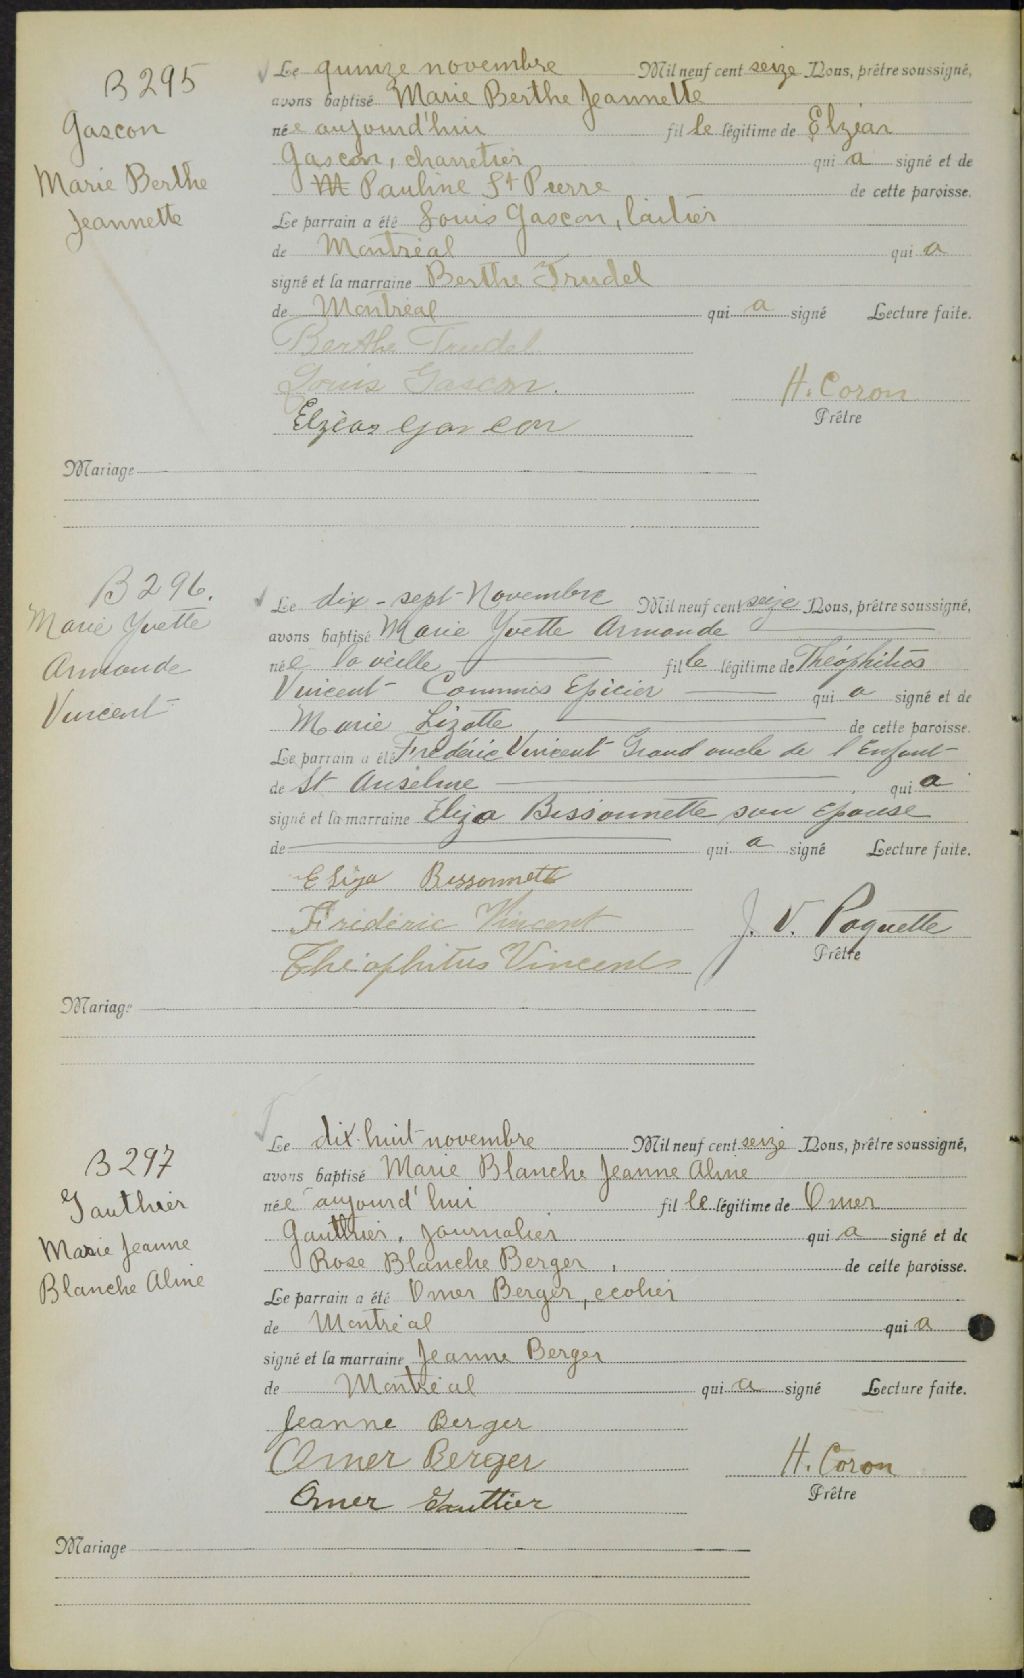 B 295
Gascon
Marie Berthe
Jeannette
Le quinze novembre Mil neuf cent seize Nous, prêtre soussigné,
avons baptisé Marie Berthe Jeannette
née aujourd'hui fille légitime de Elzéar
Gascon, charretier qui a signé et de
M Pauline St Pierre de cette paroisse.
Le parrain a été Louis Gascon, laitier
de Montréal qui a
signé et la marraine Berthe Trudel
de Montréal qui a signé Lecture faite.
Berthe Trudel
Louis Gascon.
H. Coron
Elzéar Gascon
Prêtre
Mariage
B 296.
Marie Yvette
Armande
Vincent
Le dix-sept-Novembre Mil neuf cent seize Nous, prêtre soussigné,
avons baptisé Marie Yvette Armande
née la veille fille légitime de Théophitus
Vincent Commis Epicier qui a signé et de
Marie Lizotte de cette paroisse.
Le parrain a été Frédéric Vincent Grand oncle de l'Enfant
de St Anselme qui a
signé et la marraine Eliza Bissonnette son Epouse
de qui a signé Lecture faite.
Eliza Bissonnette
Frédéric Vincent
J. V. Paquette
Prêtre
Théophitus Vincent
Mariage
B 297
Gauthier
Marie Jeanne
Blanche Aline
Le dix-huit novembre Mil neuf cent seize Nous, prêtre soussigné,
avons baptisé Marie Blanche Jeanne Aline
née aujourd'hui fille légitime de Omer
Gauthier, journalier qui a signé et de
Rose Blanche Berger, de cette paroisse.
Le parrain a été Omer Berger, ecolier
de Montréal qui a
signé et la marraine Jeanne Berger
de Montréal qui a signé Lecture faite.
Jeanne Berger
Omer Berger
H. Coron
Prêtre
Omer Gauttier
Mariage